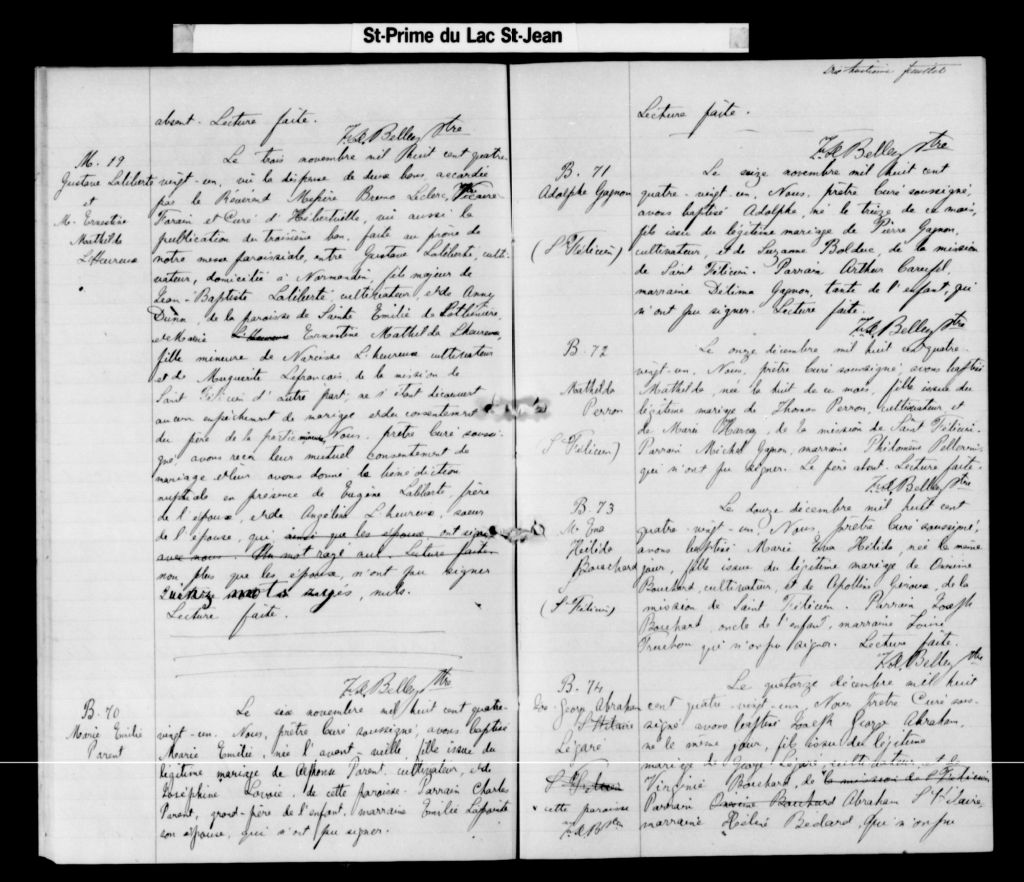 St-Prime du Lac St-Jean
absent. Lecture faite.
F.X. Belley Ptre
M. 19
Gustave Laliberté
et
M. Ernestine
Mathilde
L'Heureux
Le trois novembre mil huit cent quatre-
vingt-un, vu la dispense de deux bans accordée
par le Révérend Messire Bruno Leclerc, Vicaire
Forain et Curé d'Hébertville, vu aussi la
publication du troisième ban, faite au prône de
notre messe paroissiale, entre Gustave Laliberté, culti-
vateur, domicilié à Normandin, fils majeur de
Jean-Baptiste Laliberté, cultivateur, et de Anny
Dunn, de la paroisse de Sainte Emilie de Lotbinière,
et Marie L'heureux Ernestine Mathilde L'heureux,
fille mineure de Narcisse L'heureux cultivateur
et de Marguerite Lefrancois, de la mission de
Saint Félicien d'autre part, ne s'étant découvert
aucun empêchement de mariage et du consentement
du père de la partie mineure, Nous, prêtre Curé soussi-
gné, avons reçu leur mutuel consentement de
mariage et leur avons donné la bénédiction
nuptiale en présence de Eugène Laliberté, frère
de l'époux, et de Angélina L'heureux, soeur
de l'épouse, qui ainsi que les époux ont signé
avec nous. Un mot rayé nul. Lecture faite
non plus que les époux, n'ont pu signer
Quinze mots rayés, nuls.
Lecture faite.
F.X. Belley Ptre
B. 70
Marie Emilie
Parent
Le six novembre mil huit cent quatre-
vingt-un, Nous, prêtre Curé soussigné, avons baptisé
Marie Emilie, née l'avant-veille, fille issue du
légitime mariage de Alphonse Parent, cultivateur, et de
Joséphine Lavoie, de cette paroisse. Parrain Charles
Parent, grand-père de l'enfant, marraine Emilie Lapointe
son épouse, qui n'ont pu signer.
Dix-huitième feuillet
Lecture faite.
F.X. Belley Ptre
B. 71
Adolphe Gagnon
(St Félicien)
Le seize novembre mil huit cent
quatre-vingt-un, Nous, prêtre Curé soussigné,
avons baptisé Adolphe, né le treize de ce mois,
fils issu du légitime mariage de Pierre Gagnon,
cultivateur, et de Suzanne Bolduc, de la mission
de Saint Félicien. Parrain Arthur
marraine Délima Gagnon, tante de l'enfant, qui
n'ont pu signer. Lecture faite.
F.X. Belley Ptre
B. 72
Mathilde
Perron
(St Félicien)
Le onze décembre mil huit cent quatre-
vingt-un, Nous, prêtre Curé soussigné, avons baptisé
Mathilde, née le huit de ce mois, fille issue du
légitime mariage de Thomas Perron, cultivateur, et
de Marie de la mission de Saint Félicien.
Parrain Michel Gagnon, marraine Philomène
qui n'ont pu signer. Le père absent. Lecture faite.
F.X. Belley Ptre
B. 73
M. Eva
Hélida
Bouchard
(St Félicien)
Le douze décembre mil huit cent
quatre-vingt-un, Nous, prêtre Curé soussigné,
avons baptisé Marie Eva Hélida, née le même
jour, fille issue du légitime mariage de Onésime
Bouchard, cultivateur, et de Apolline Giroux, de la
mission de Saint Félicien. Parrain Joseph
Bouchard, oncle de l'enfant, marraine Louise
Truchon qui n'ont pu signer. Lecture faite.
F.X. Belley Ptre
B. 74
Jos. George Abraham
St Hilaire
Légaré
St Félicien
x cette paroisse
F.X.B. Ptre
Le quatorze décembre mil huit
cent quatre-vingt-un, Nous, Prêtre Curé sous-
signé avons baptisé Joseph George Abraham,
né le même jour, fils issu du légitime
mariage de George Légaré, cultivateur, et de
Virginie Bouchard, de la mission de St Félicien
Parrain Onésime Bouchard Abraham St Hilaire,
marraine Hélène Bédard, qui n'ont pu